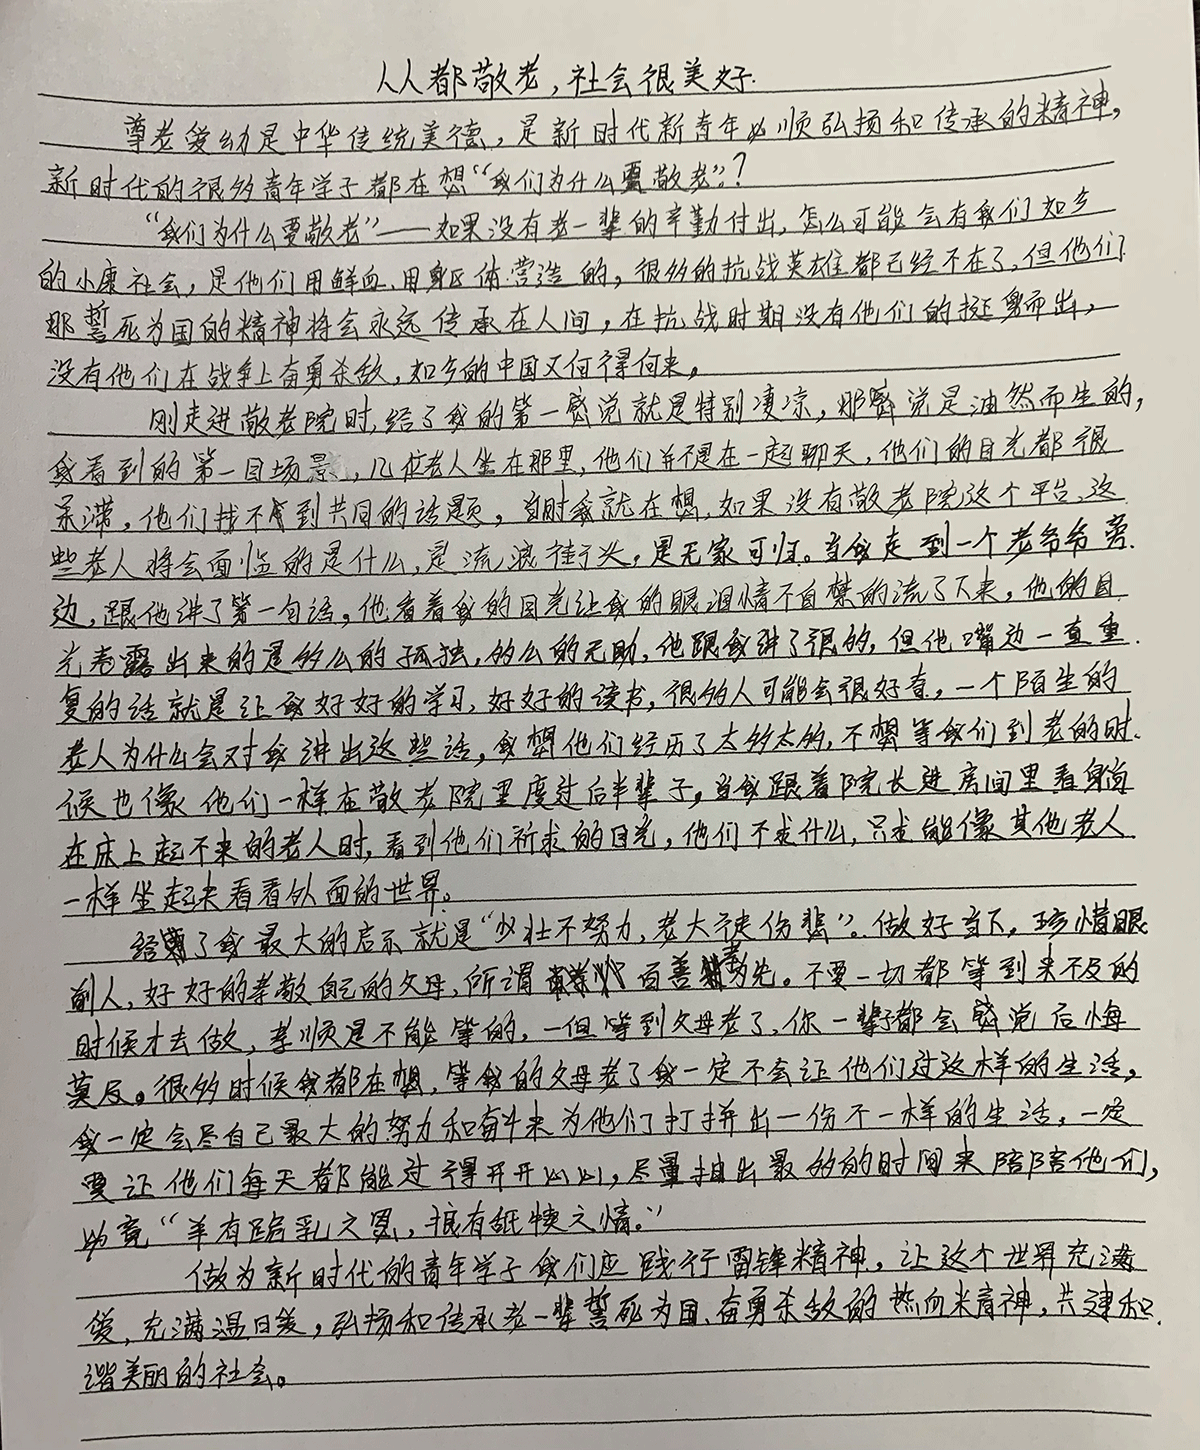 人人都敬老，社会很美好.
尊老爱幼是中华传统美德，是新时代新青年必须弘扬和传承的精神，
新时代的很多青年学子都在想“我们为什么要敬老”？
“我们为什么要敬老”——如果没有老一辈的辛勤付出，怎么可能会有我们如今
的小康社会，是他们用鲜血、用身躯体营造的，很多的抗战英雄都已经不在了，但他们
那誓死为国的精神将会永远传承在人间，在抗战时期没有他们的挺身而出，
没有他们在战争上奋勇杀敌，如今的中国又何得何来。
刚走进敬老院时，给了我的第一感觉就是特别凄凉，那感觉是油然而生的，
我看到的第一目场景，几位老人坐在那里，他们并不是在一起聊天，他们的目光都很
呆滞，他们找不到共同的话题，当时我就在想，如果没有敬老院这个平台，这
些老人将会面临的是什么，是流浪街头，是无家可归。当我走到一个老爷爷旁
边，跟他讲了第一句话，他看着我的目光让我的眼泪情不自禁的流了下来，他的目
光表露出来的是多么的孤独，多么的无助，他跟我讲了很多，但他嘴边一直重
复的话就是让我好好的学习、好好的读书，很多人可能会很好奇，一个陌生的
老人为什么会对我讲出这些话，我想他们经历了太多太多，不想等我们到老的时
候也像他们一样在敬老院里度过后半辈子，当我跟着院长进房间里看身
在床上起不来的老人时，看到他们祈求的目光，他们不求什么，只求能像其他老人
一样坐起来看看外面的世界。
给了我最大的启示就是“少壮不努力，老大徒伤悲”。做好当下，珍惜眼
前人，好好的孝敬自己的父母，所谓百善孝为先。不要一切都等到来不及的
时候才去做，孝顺是不能等的，一但等到父母老了，你一辈子都会感觉后悔
莫及。很多时候我都在想，等我的父母老了我一定不会让他们过这样的生活，
我一定会尽自己最大的努力和奋斗来为他们打拼出一份不一样的生活，一定
要让他们每天都能过得开开心心，尽量抽出最多的时间来陪陪他们，
毕竟“羊有跪乳之恩，狼有舐犊之情。”
做为新时代的青年学子我们应践行雷锋精神，让这个世界充满
爱，充满温暖，弘扬和传承老一辈誓死为国、奋勇杀敌的热血精神，共建和
谐美丽的社会。